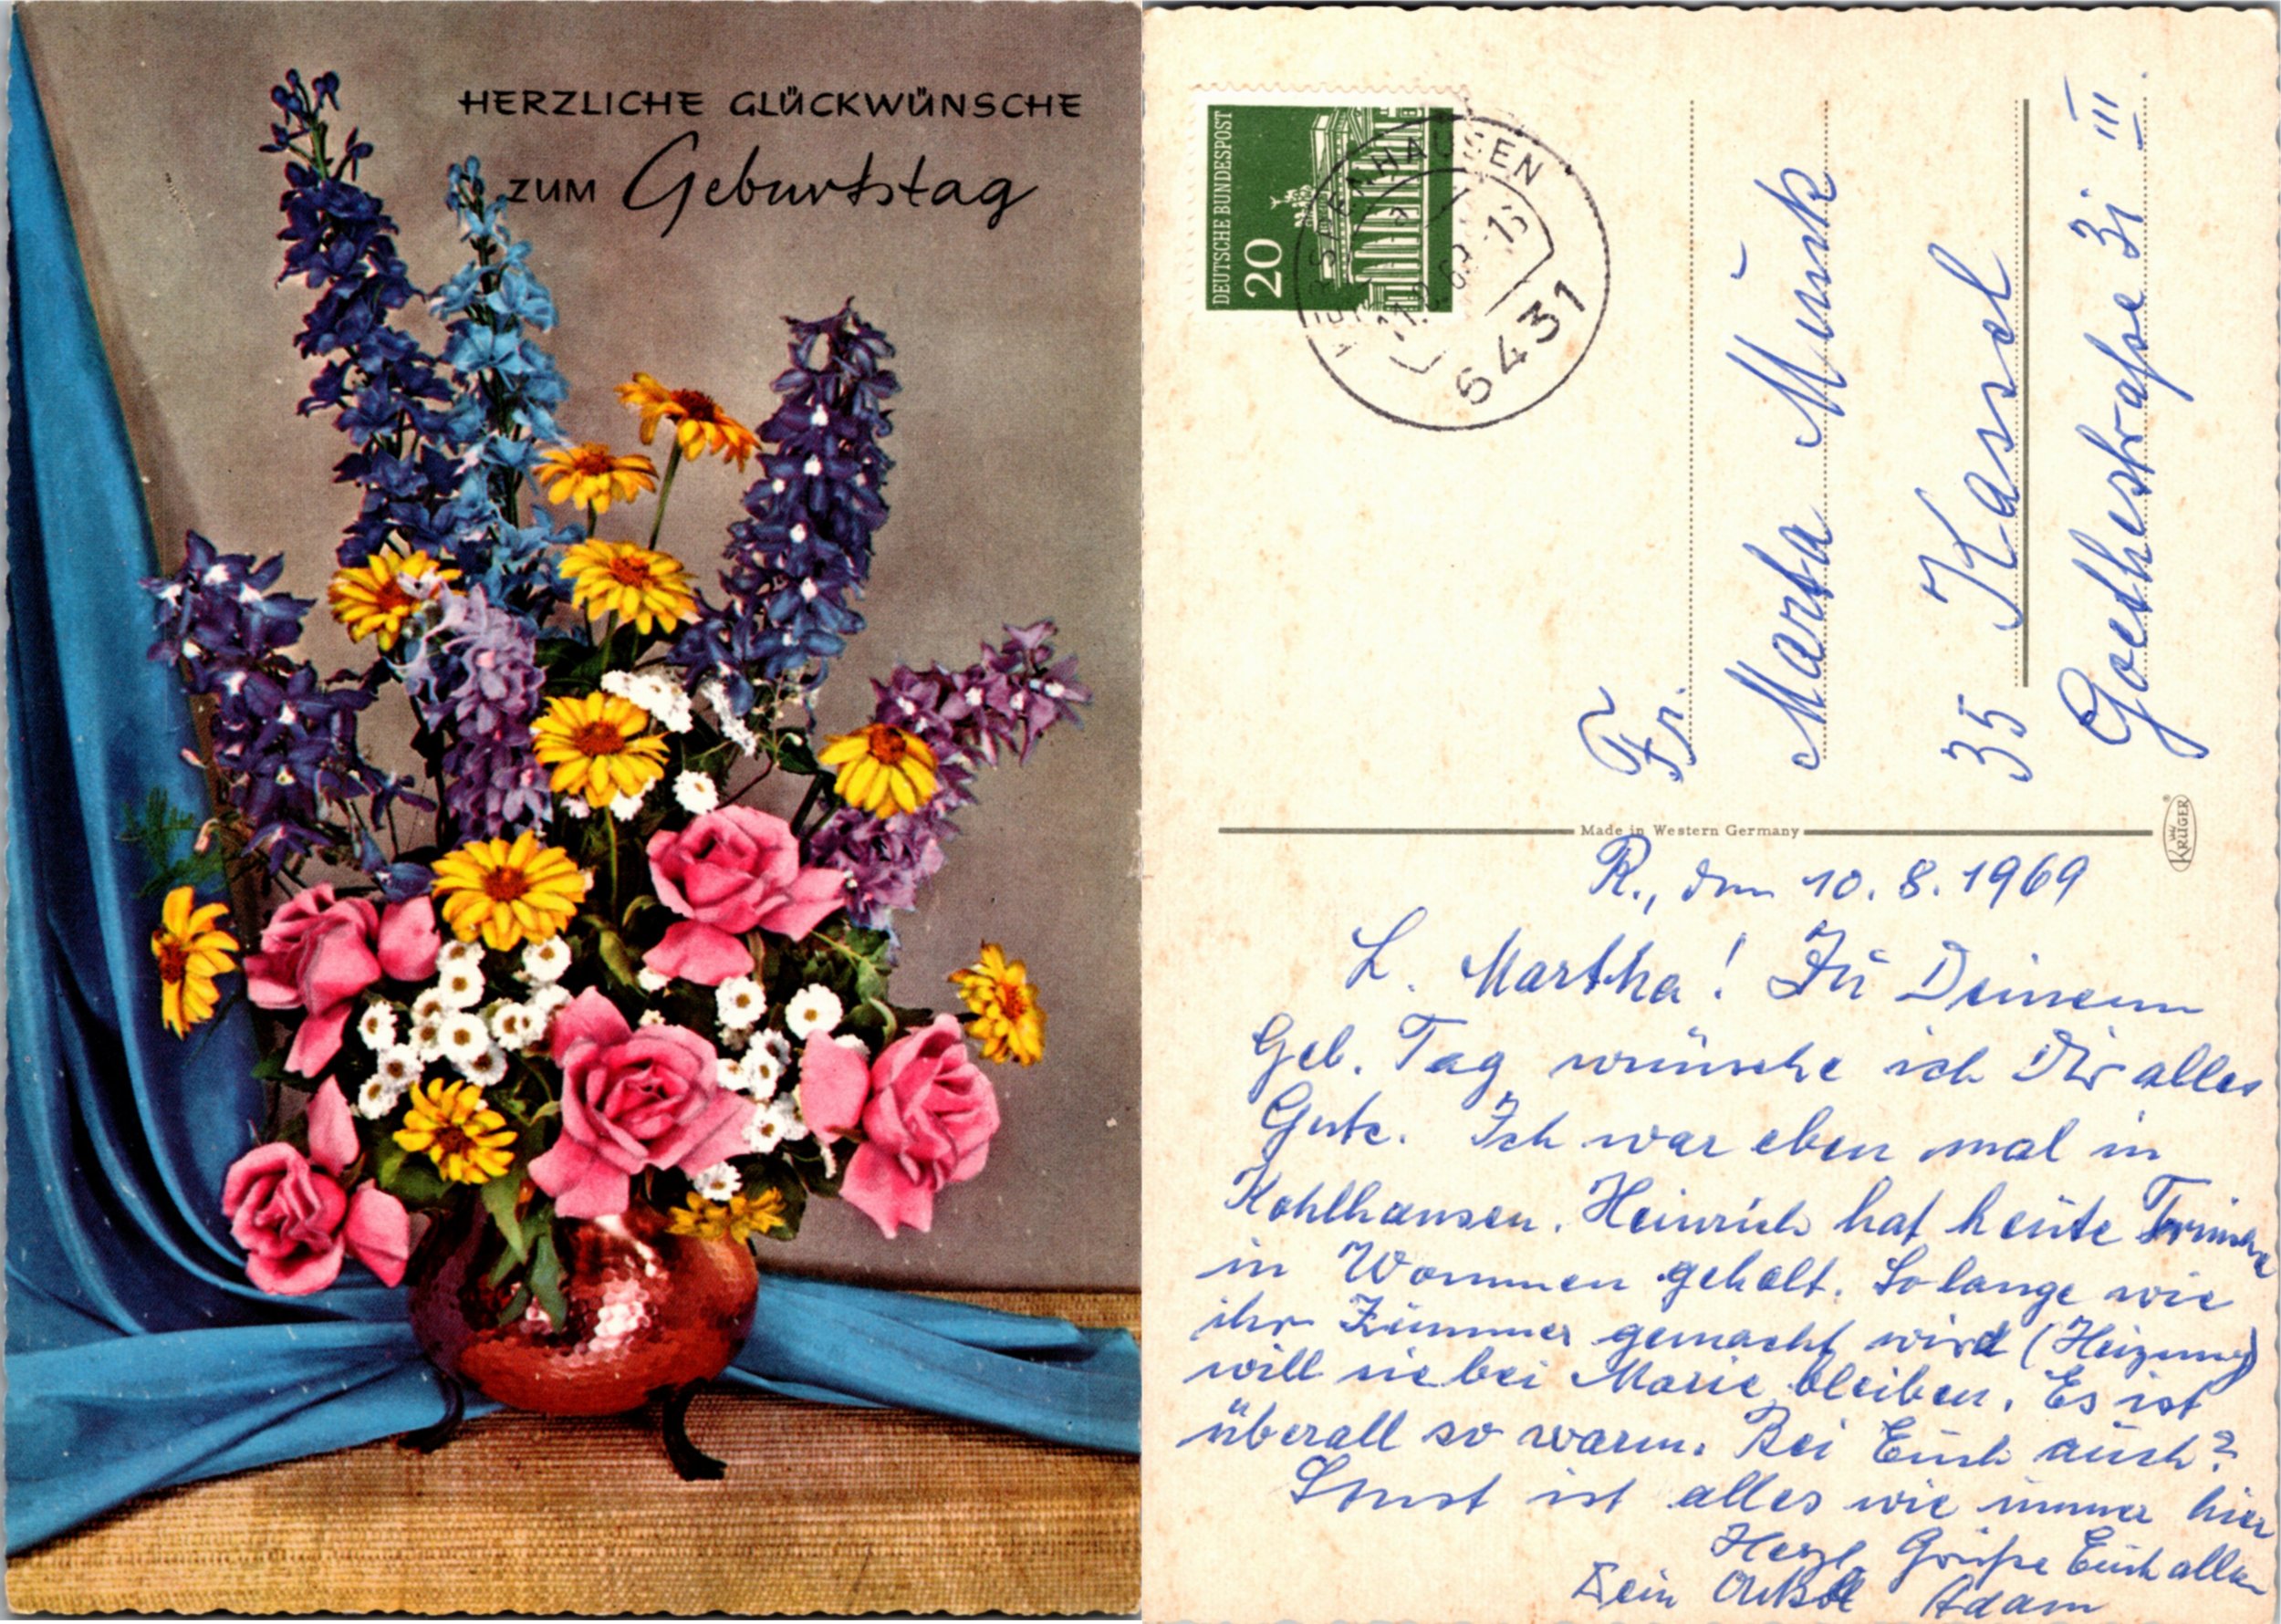 HERZLICHE GLÜCKWÜNSCHE
ZUM Geburtstag
DEUTSCHE BUNDESPOST
20
6431
Frl.
Marta Munk
35 Kassel
Goethestraße 31 III
Made in Western Germany
KRÜGER
R., den 10.8.1969
L. Martha! Zu Deinem
Geb. Tag wünsche ich Dir alles
Gute. Ich war eben mal in
Kohlhausen. Heinrich hat heute
in Wommen geholt. So lange wie
ihr Zimmer gemacht wird (Heizung)
will sie bei Marie bleiben. Es ist
überall so warm. Bei Euch auch?
Sonst ist alles wie immer hier
Herzl. Grüße Euch allen
Dein Onkel Adam